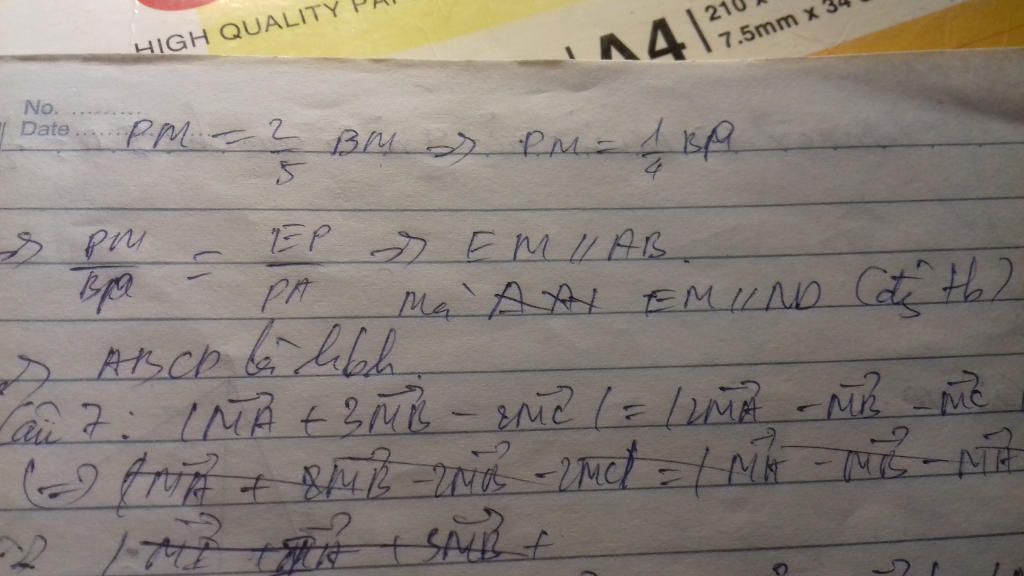 HIGH QUALITY PA
A4 210 x
7.5mm x 34
No.
Date
PM = 2/5 BM => PM = 1/4 BP
=> PM/BP = EP/PA => EM // AB.
Mà EM // ND (đg tb)
=> ABCD là hbh.
Câu 7: |MA + 3MB - 2MC| = |2MA - MB - MC|
(=) |MA + 3MB - 2MB - 2MC| = |MA - MB - MA
| MI + MA + 3MB +